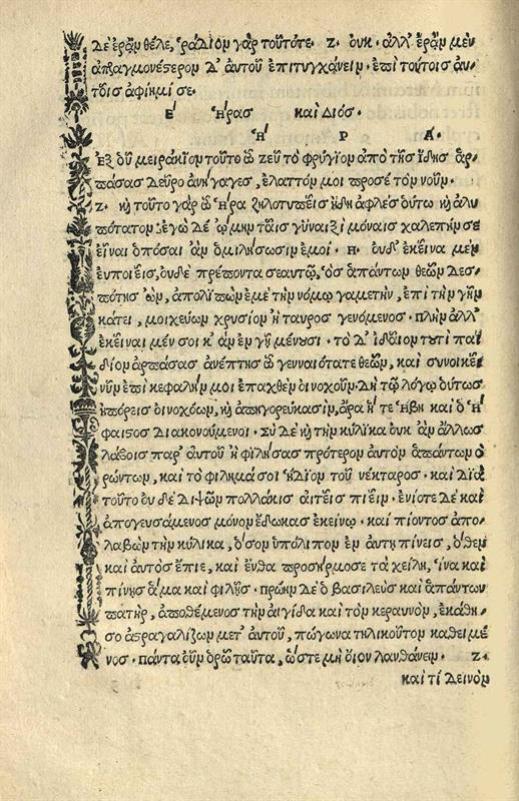 δὲ ἐρᾷν θέλε, ῥάδιον γὰρ τοῦτό γε · Ζ · οὐκ · ἀλλ' ἐρᾷν μὲν
ἀπραγμονέστερον δ' αὐτοῦ ἐπιτυγχάνειν · ἐπὶ τούτοις αὐ-
τοῖς ἀφίημί σε ·
Ε′ Ἥρας καὶ Διός ·
Ἥ Ρ Α ·
Ἐξ οὗ μειράκιον τοῦτο ὦ ζεῦ τὸ φρύγιον ἀπὸ τῆς ἴδης ἁρ-
πάσας δεῦρο ἀνήγαγες, ἔλαττόν μοι προσέχεις τὸν νοῦν ·
Ζ · καὶ τοῦτο γὰρ ὦ ἥρα ζηλοτυπεῖς ἤδη ἀφελὲς οὕτω καὶ ἀλυ-
πότατον; ἐγὼ δὲ ᾤμην ταῖς γύναιξὶ μόναις χαλεπήν σε
εἶναι ὁπόσαι ἂν ὁμιλήσωσιν ἐμοί · Η · οὐδ' ἐκεῖνα μὲν
εὖ ποιεῖς, οὐδὲ πρέποντα σεαυτῷ, ὃς ἁπάντων θεῶν δεσ-
πότης ὢν, ἀπολιπὼν ἐμὲ τὴν νόμῳ γαμετὴν, ἐπὶ τὴν γῆν
κάτει, μοιχεύων χρυσίον ἢ ταῦρος γενόμενος · πλὴν ἀλλ'
ἐκεῖναι μέν σοι κ' ἂν ἐν γῇ μένουσι · τὸ δ' ἰδαῖον τουτὶ παι-
δίον ἁρπάσας ἀνέπτης ὦ γενναιότατε θεῶν, καὶ συνοικεῖ
νῦν ἐπὶ κεφαλήν μοι ἐπαχθὲν οἰνοχοοῦν δὴ τῷ λόγῳ οὕτως
ἠπόρεις οἰνοχόων, καὶ ἀπηγορεύκασιν, ἄρα ἥ τε ἥβη καὶ ὁ ἥ-
φαιστος διακονούμενοι · σὺ δὲ καὶ τὴν κύλικα οὐκ ἂν ἄλλως
λάβοις παρ' αὐτοῦ ἢ φιλήσας πρότερον αὐτὸν ἁπάντων ὁ-
ρώντων, καὶ τὸ φίλημά σοι ἥδιον τοῦ νέκταρος · καὶ διὰ
τοῦτο οὐδὲ διψῶν πολλάκις αἰτεῖς πιεῖν · ἐνίοτε δὲ καὶ
ἀπογευσάμενος μόνον ἔδωκας ἐκείνῳ · καὶ πιόντος ἀπο-
λαβὼν τὴν κύλικα, ὅσον ὑπόλιπον ἐν αὐτῇ πίνεις, ὅθεν
καὶ αὐτὸς ἔπιε, καὶ ἔνθα προσήρμοσε τὰ χείλη, ἵνα καὶ
πίνῃς ἅμα καὶ φιλῇς · πρώην δὲ ὁ βασιλεὺς καὶ ἁπάντων
πατὴρ, ἀποθέμενος τὴν αἰγίδα καὶ τὸν κεραυνὸν, ἐκάθη-
σο ἀστραγαλίζων μετ' αὐτοῦ, πώγωνα τηλικοῦτον καθειμέ-
νος · πάντα οὖν ὁρῶ ταῦτα, ὥστε μὴ οἴου λανθάνειν · Ζ ·
καὶ τί δεινὸν